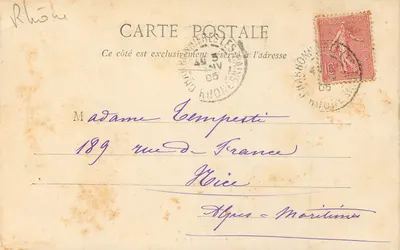 Rhône
CARTE POSTALE
Ce côté est exclusivement réservé à l'adresse
CHARBONNIERES LES BAINS
05
RHONE
Madame Tempesti
189 rue de France
Nice
Alpes-Maritimes